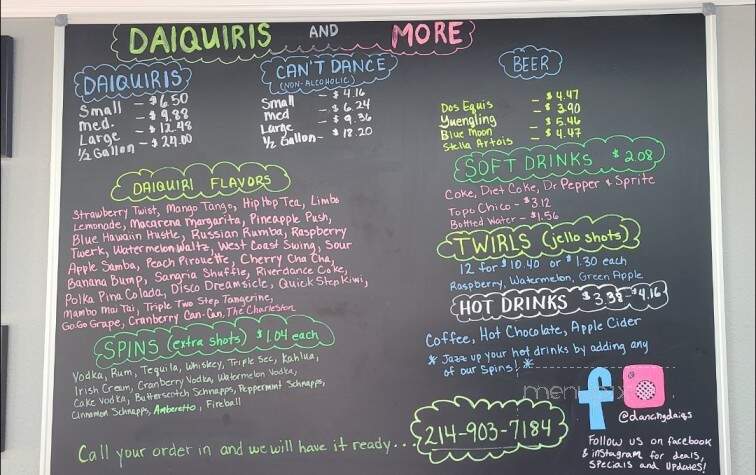 DAIQUIRIS AND MORE
DAIQUIRIS
Small - $6.50
med. - $9.88
Large - $12.48
1/2 Gallon - $24.00
CAN'T DANCE
(NON-ALCOHOLIC)
Small - $4.16
Med - $6.24
Large - $9.36
1/2 Gallon - $18.20
BEER
Dos Equis - $4.47
Yuengling - $3.90
Blue Moon - $5.46
Stella Artois - $4.47
SOFT DRINKS $2.08
Coke, Diet Coke, Dr Pepper & Sprite
Topo Chico - $3.12
Bottled Water - $1.56
DAIQUIRI FLAVORS
Strawberry Twist, Mango Tango, Hip Hop Tea, Limbo
Lemonade, Macarena Margarita, Pineapple Push,
Blue Hawaiin Hustle, Russian Rumba, Raspberry
Twerk, Watermelon Waltz, West Coast Swing, Sour
Apple Samba, Peach Pirouette, Cherry Cha Cha,
Banana Bump, Sangria Shuffle, Riverdance Coke,
Polka Pina Colada, Disco Dreamsicle, Quick Step Kiwi,
Mambo Mai Tai, Triple Two Step Tangerine,
Go.Go Grape, Cranberry Can-Can, The Charleston
TWIRLS (jello shots)
12 for $10.40 or $1.30 each
Raspberry, Watermelon, Green Apple
HOT DRINKS $3.38-$4.16
Coffee, Hot Chocolate, Apple Cider
* Jazz up your hot drinks by adding any
of our Spins! *
SPINS (extra shots) $1.04 each
Vodka, Rum, Tequila, Whiskey, Triple Sec, Kahlua,
Irish Cream, Cranberry Vodka, Watermelon Vodka,
Cake Vodka, Butterscotch Schnapps, Peppermint Schnapps,
Cinnamon Schnapps, Amberetto, Fireball
Call your order in and we will have it ready...
214-903-7184
f
@dancingdaiqs
Follow us on facebook
& instagram for deals,
specials and updates!